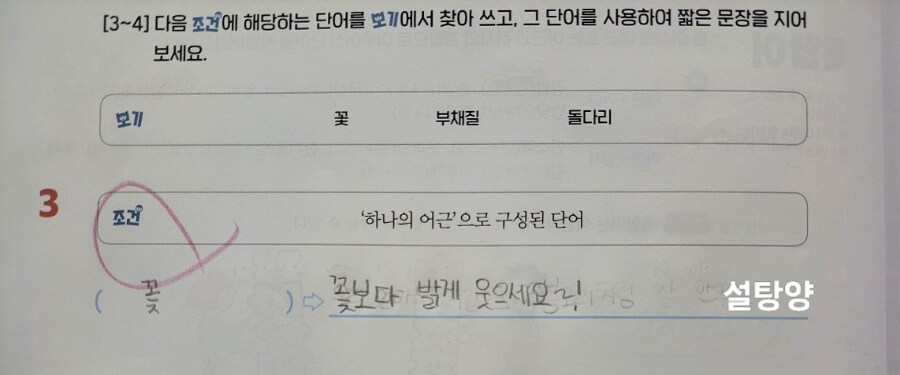 [3~4] 다음 조건에 해당하는 단어를 보기에서 찾아 쓰고, 그 단어를 사용하여 짧은 문장을 지어
보세요.
보기 꽃 부채질 돌다리
3
조건 '하나의 어근'으로 구성된 단어
( 꽃 ) ⇨ 꽃보다 발게 웃으세요 설탕양